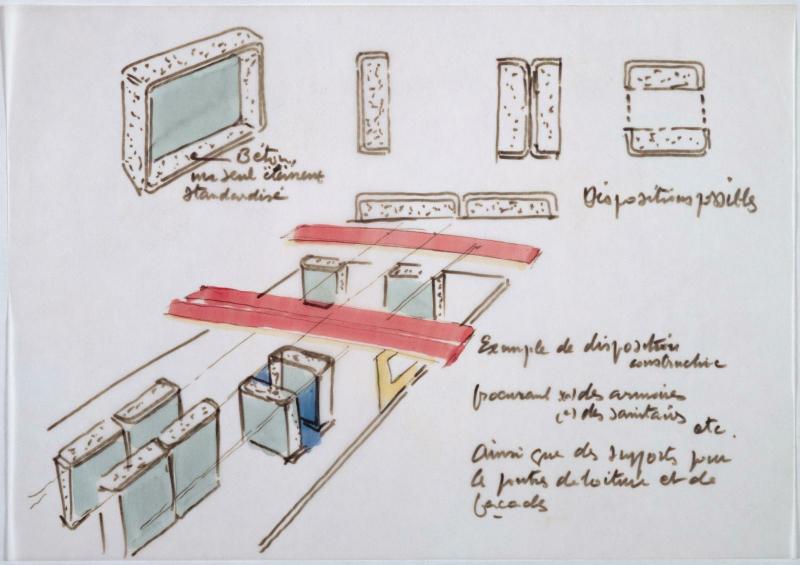 Béton,
un seul élément
standardisé
Dispositions possibles
Example de disposition
constructive
procurant des armoires
des sanitairs
etc.
Ainsi que des supports pour
le poutres de toiture et de
façades